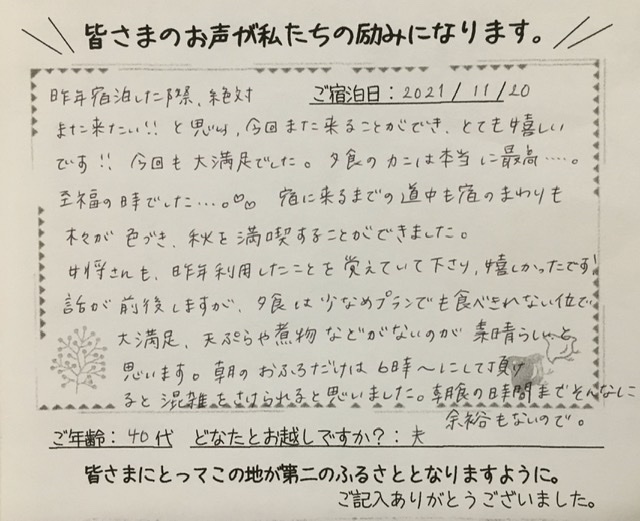 皆さまのお声が私たちの励みになります。
ご宿泊日：2021/11/20
昨年宿泊した際、絶対
また来たい!! と思い、今回また来ることができ、とても嬉しい
です!! 今回も大満足でした。夕食のカニは本当に最高……。
至福の時でした…。♡♡ 宿に来るまでの道中も宿のまわりも
木々が色づき、秋を満喫することができました。
女将さんも、昨年利用したことを覚えていて下さり、嬉しかったです!
話が前後しますが、夕食は少なめプランでも食べきれない位で
大満足、天ぷらや煮物などがないのが素晴らしいと
思います。朝のおふろだけは6時〜にして頂け
ると混雑をさけられると思いました。朝食の時間までそんなに
余裕もないので。
ご年齢：40代 どなたとお越しですか？：夫
皆さまにとってこの地が第二のふるさととなりますように。
ご記入ありがとうございました。